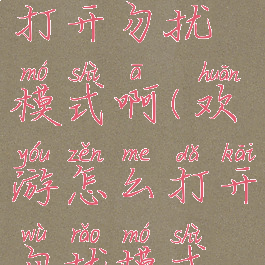 打开勿扰
mó shì ā huān
模式啊(欢
yóu zěn me dǎ kāi
游怎么打开
wù rǎo mó shì
勿扰模式